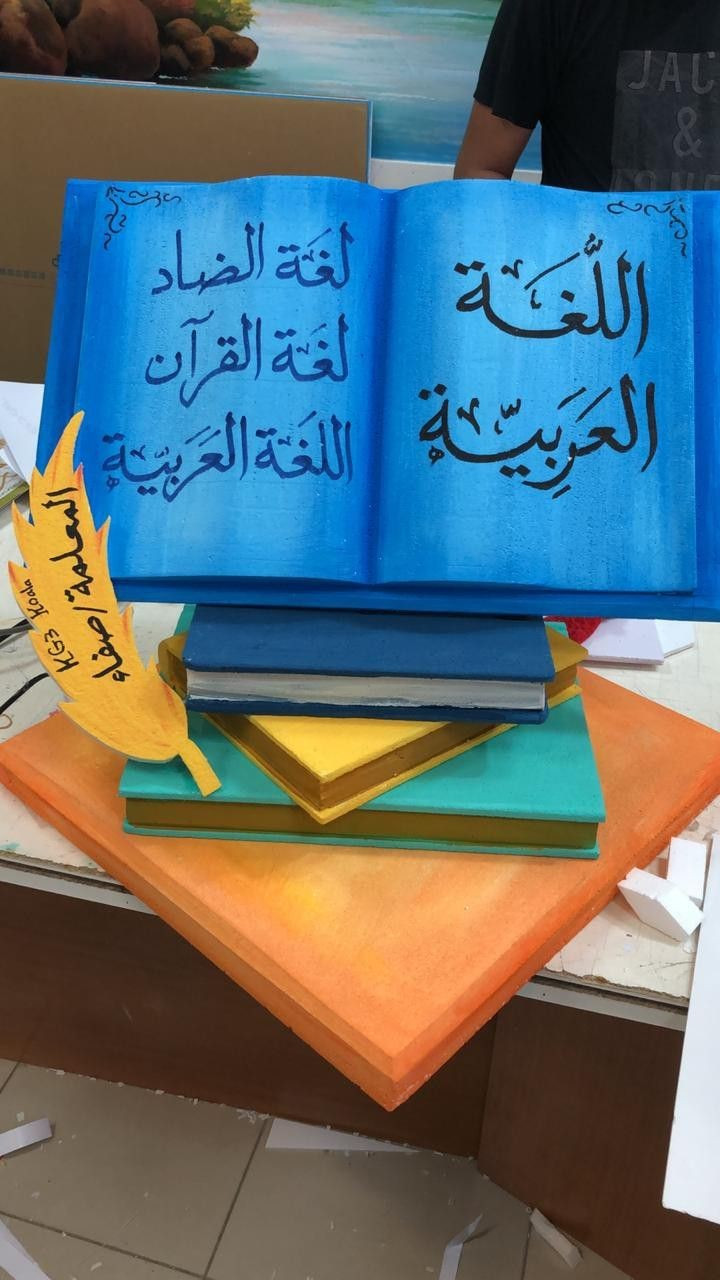 اللُّغَة
العَرَبِيّة
لغَة الضاد
لغَة القرآن
اللغَة العَربيّة
المعلمة / صفاء
KG3 Koala
JAC
&